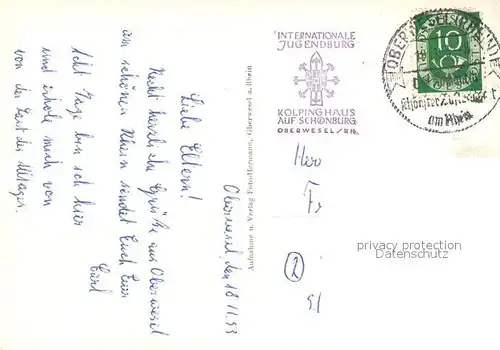 Oberwesel, den 18.11.53
Liebe Eltern!
Recht herzliche Grüße aus Oberwesel
am schönen Rhein sendet Euch Euer
Carl
Acht Tage bin ich hier
und erhole mich von
von der Last des Alltages.
Aufnahme u. Verlag Foto-Hermann, Oberwesel a. Rhein
INTERNATIONALE
JUGENDBURG
KOLPINGHAUS
AUF SCHÖNBURG
OBERWESEL/RH.
OBERWESEL
10
am Rhein
Herr
Fr
2
privacy protection
Datenschutz